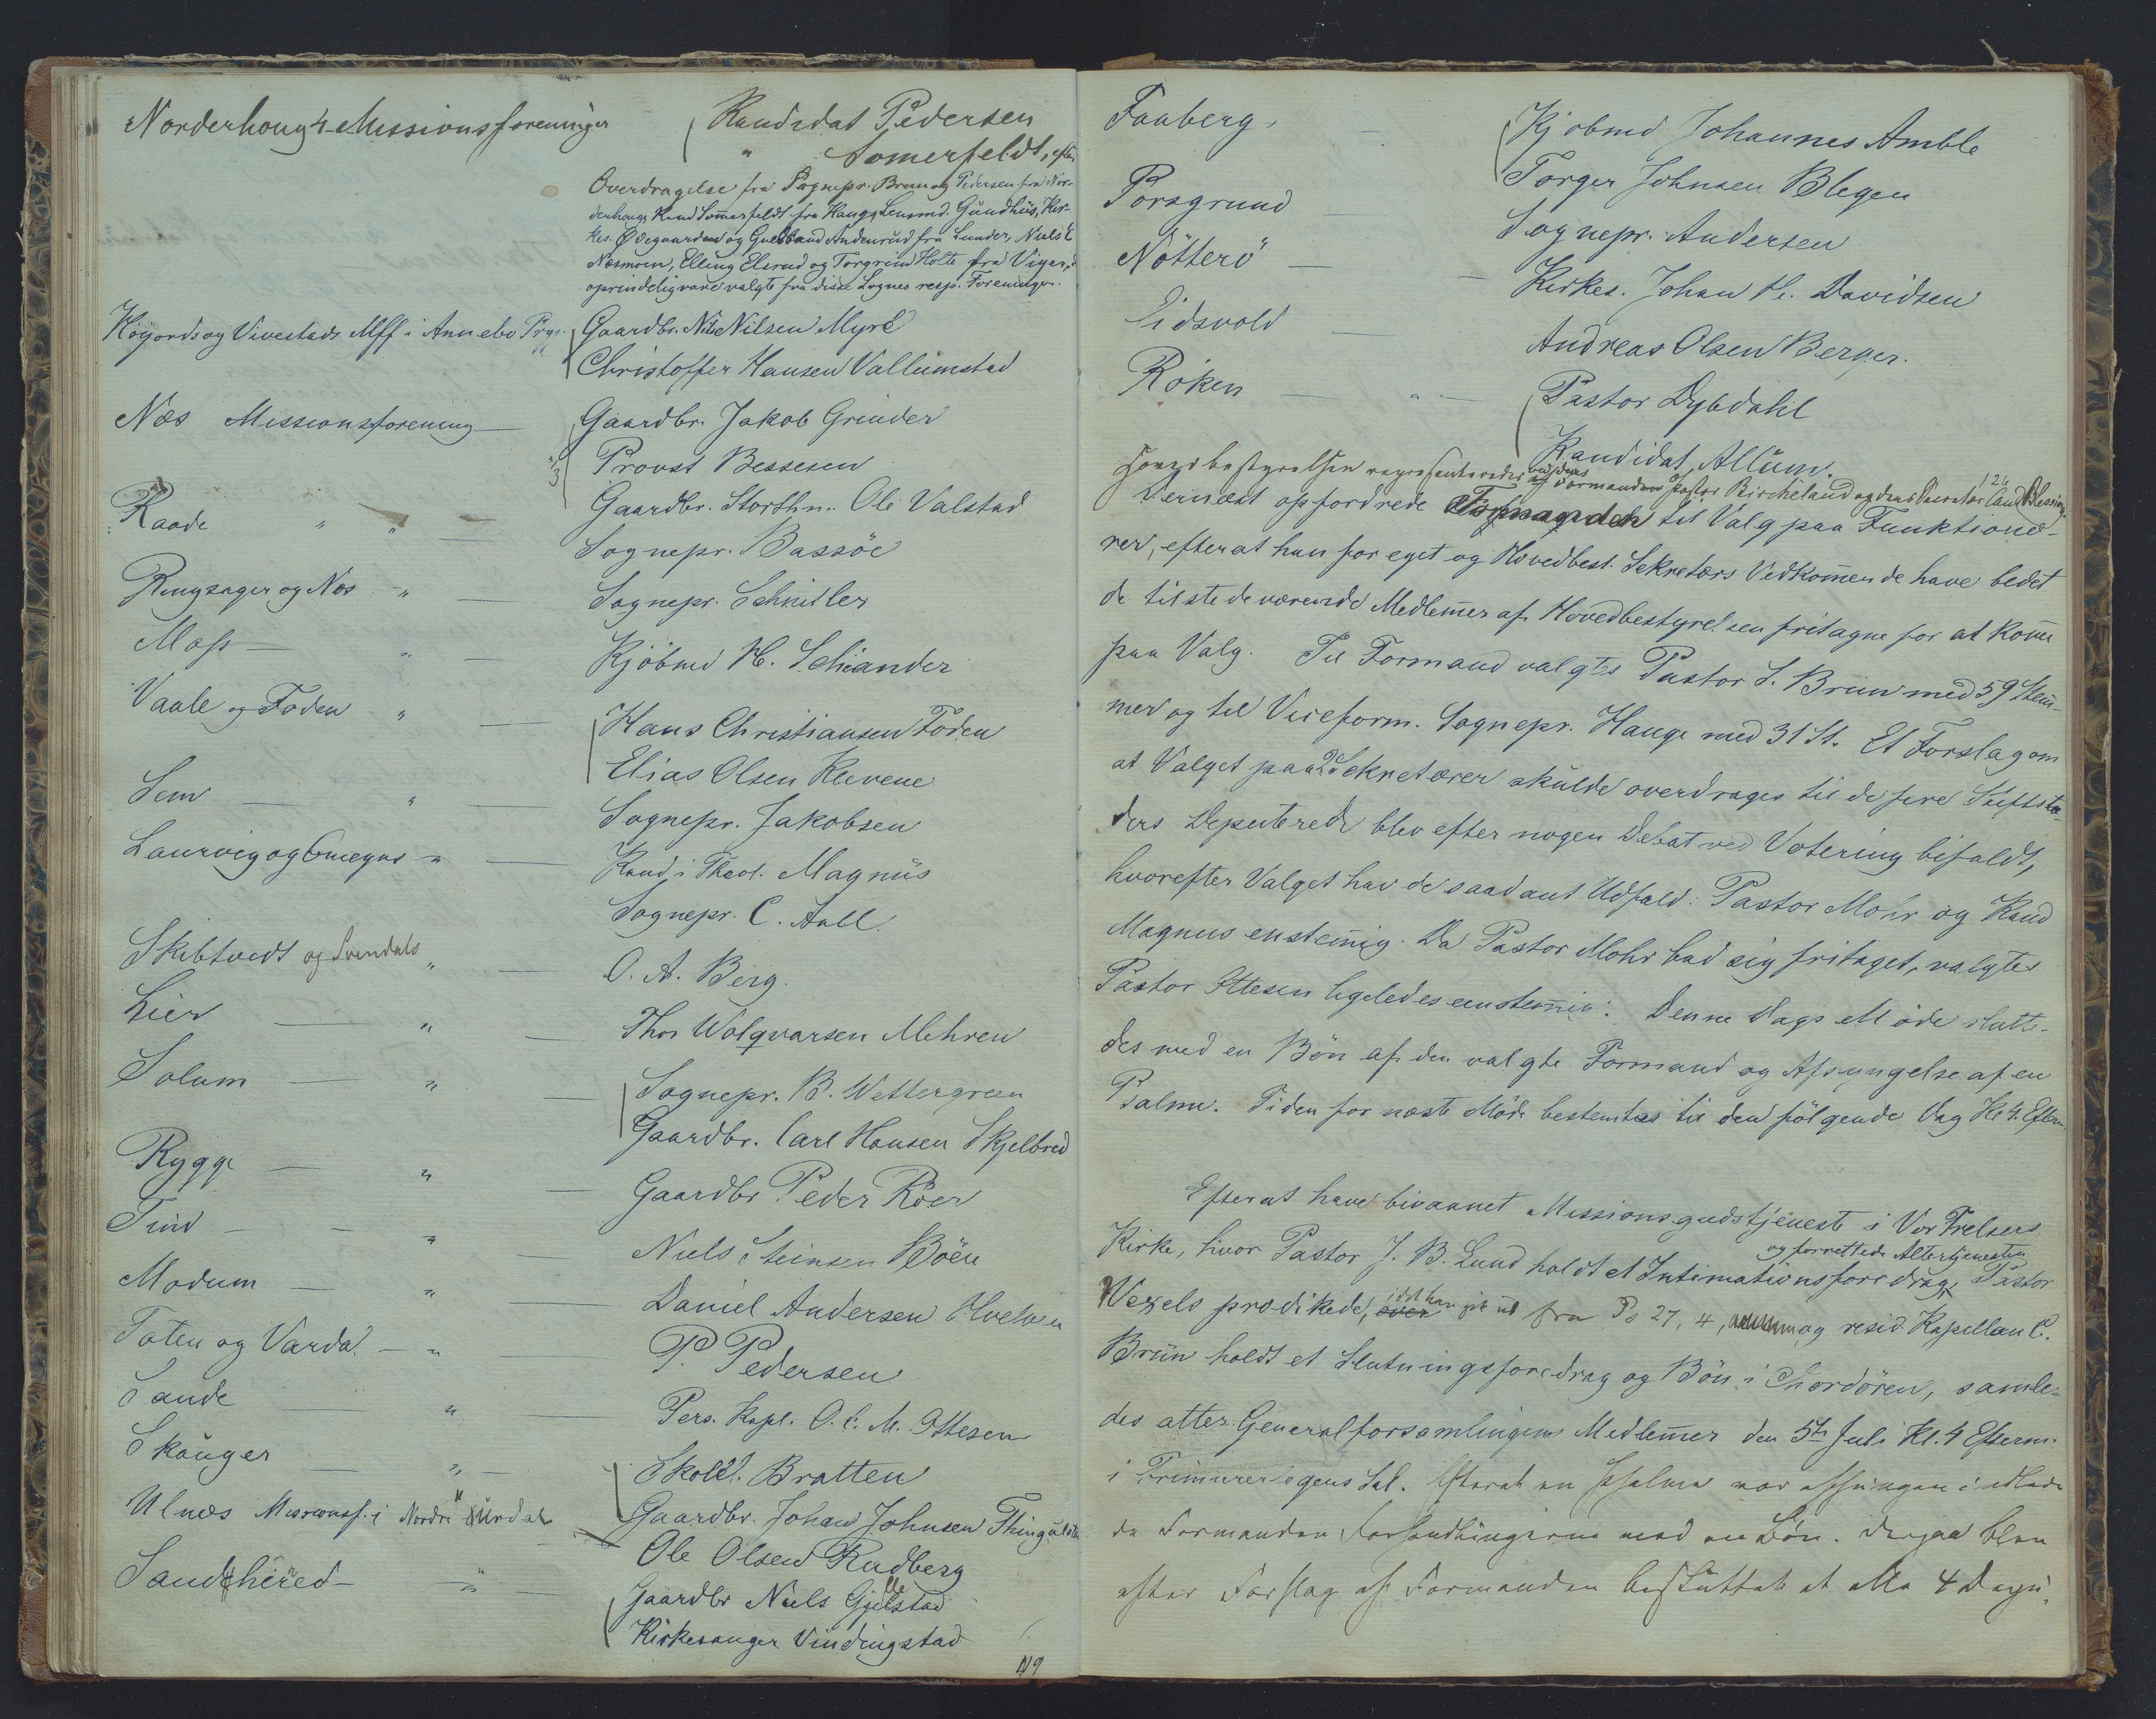 Norderhoug 4 Missionsforeninger Kandidat Pedersen
" Somerfeldt, efter
Overdragelse fra Sognepr. Brun og Pedersen fra Nor-
derhoug, Kand Somerfeldt fra Haug, Lensmd. Gundhus, Kir-
kes. Ødegaarden og Gudbrand Andenrud fra Lunder, Niels E
Næsmoen, Elling Elsrud og Torgrim Holte fra Viger,
oprindelig vare valgte fra disse Sognes resp. Foreninger.
Höyjords og Vivestads Mff i Annebo Prgj. Gaardbr. Nils Nilsen Myre
Christoffer Hansen Vallumstad
Næs Missionsforening — Gaardbr. Jakob Grinder
3 Provst Bessesen
Gaardbr. Storthm. Ole Valstad
Raade " " — Sognepr. Bassöe
Ringsager og Næs — " — Sognepr. Schnitler
Moss — " — Kjöbmd H. Schiander
Vaale og Foden " — Hans Christiansen Foden
Elias Olsen Klevene
Sem — " — Sognepr. Jakobsen
Laurvig og Omegns " — Kand. i Theol. Magnus
Sognepr. C. Aall.
Skibtvedt og Svendals " — O. A. Berg.
Lier — " — Thor Wolqvarsen Mehren
Solum — " — Sognepr. B. Wettergreen
Gaardbr. Carl Hansen Skjelbred
Rygge — " — Gaardbr Peder Röer
Tind — " — Niels Steinsen Böen
Modum — " — Daniel Andersen Hvelven
Toten og Vardal — " P. Pedersen
Sande — " — Pers. Kapl. O. C. M. Ottesen
Skauger — " — Skolel. Bratten
Gaardbr. Johan Johnsen
Ulnæs Missionsf. i Nordre Aurdal — Ole Olsen Rudberg
Sandeherred — " — Gaardbr Niels Gjelstad
Kirkesanger Vindingstad
119
Faaberg. — Kjöbmd Johannes Amble
Torger Johnsen Blegen
Porsgrund Sognepr. Andersen
Nötterö — Kirkes. Johan H. Davidsen
Eidsvold — Andreas Olsen Berger.
Röken — " — Pastor Dybdahl
Kandidat Allum.
120
Hovedbestyrelsen repræsenteredes ved dens Formand Pastor Bircheland og dens Secretær Cand Blessing.
Dernæst opfordrede Formanden til Valg paa Funktionæ-
rer, efterat han for eget og Hovedbest. Sekretærs Vedkommende have bedet
de tilstedeværende Medlemmer af Hovedbestyrelsen fritagne for at komme
paa Valg. Til Formand valgtes Pastor S. Brun med 59 Stem-
mer og til Viceform. Sognepr. Hauge med 31 St. Et Forslag om
at Valget paa 2de Sekretærer skulde overdrages til de fire Stiftsstæ-
ders Deputerede blev efter nogen Debat ved Votering bifaldt,
hvorefter Valget havde saadant Udfald: Pastor Mohr og Kand
Magnus enstemig. Da Pastor Mohr bad sig fritaget, valgtes
Pastor Ottesen ligeledes eenstemig. Denne Dags Möde slutte-
des med en Bön af den valgte Formand og Afsyngelse af en
Psalme. Tiden for næste Möde bestemtes til den fölgende Dag Kl 4 Efterm
Efter at have bivaanet Missionsgudstjeneste i Vor Frelsers
Kirke, hvor Pastor J. B. Lund holdt et Intimationsforedrag og forrettede Altertjenesten, Pastor
Wexels prædikede, over idet han gik ud fra Ps 27, 4, og resid. Kapellan C.
Brun holdt et Slutningsforedrag og Bön i Chordören, samle-
des atter Generalforsamlingens Medlemmer den 5te Juli Kl. 4 Efterm.
i Frimurerlogens Sal. Efterat en Psalme var afsungen indledo-
de Formanden Forhandlingerne med en Bön. Derpaa blev
efter Forslag af Formanden besluttet at alle 4 Dags-